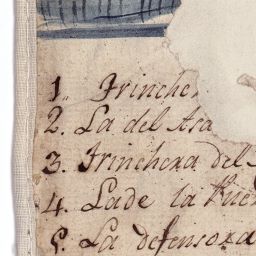 1. Trinche
2. La del Asa
3. Trinchera del
4. La de la Pue
5. La defensora